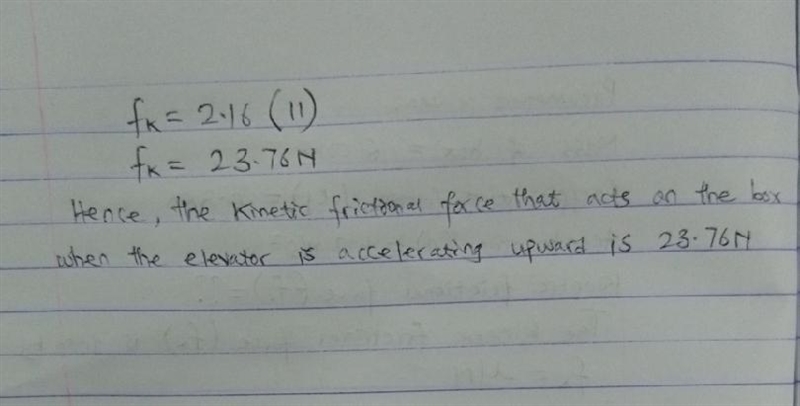 fk = 2.16 (11)
fk = 23.76N
Hence, the kinetic frictional force that acts on the box
when the elevator is accelerating upward is 23.76N